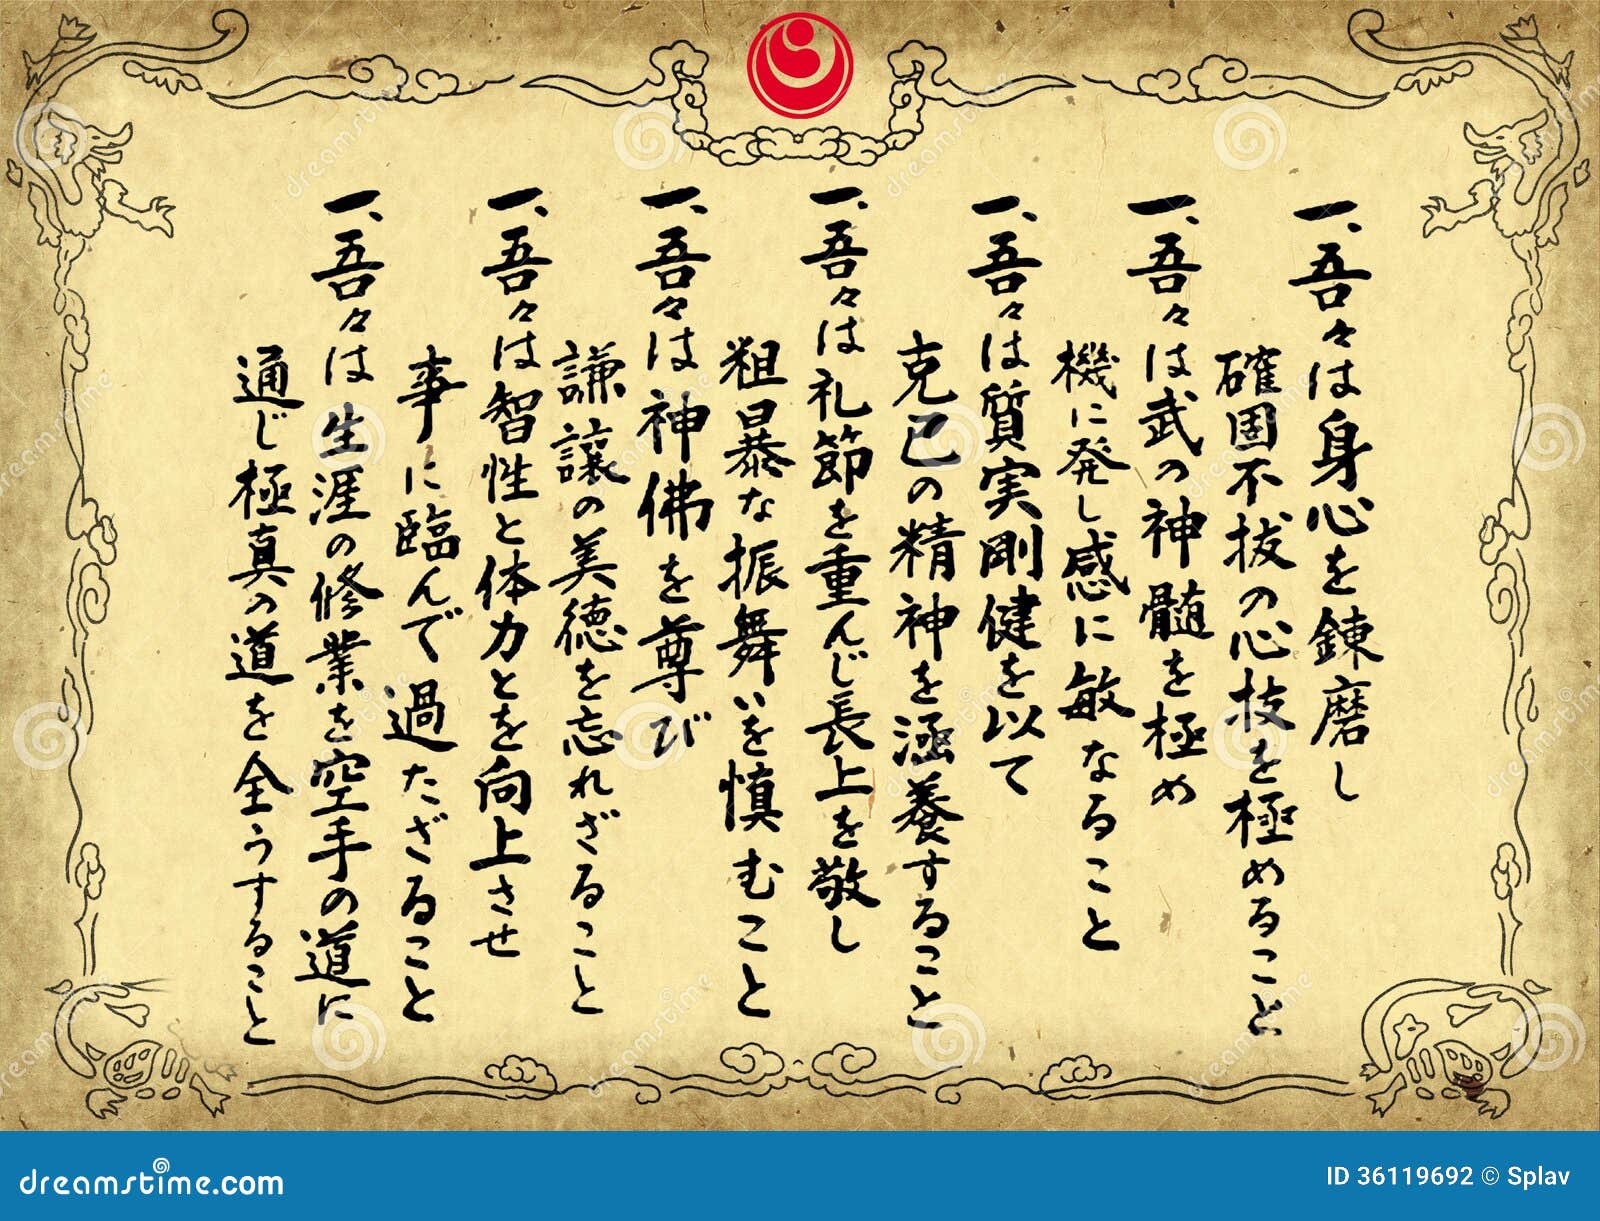 一、吾々は身心を錬磨し
確固不抜の心技を極めること
一、吾々は武の神髄を極め
機に発し感に敏なること
一、吾々は質実剛健を以て
克己の精神を涵養すること
一、吾々は礼節を重んじ長上を敬し
粗暴な振舞いを慎むこと
一、吾々は神佛を尊び
謙譲の美徳を忘れざること
一、吾々は智性と体力とを向上させ
事に臨んで過たざること
一、吾々は生涯の修業を空手の道に
通じ極真の道を全うすること
dreamstime.com
ID 36119692 © Splav